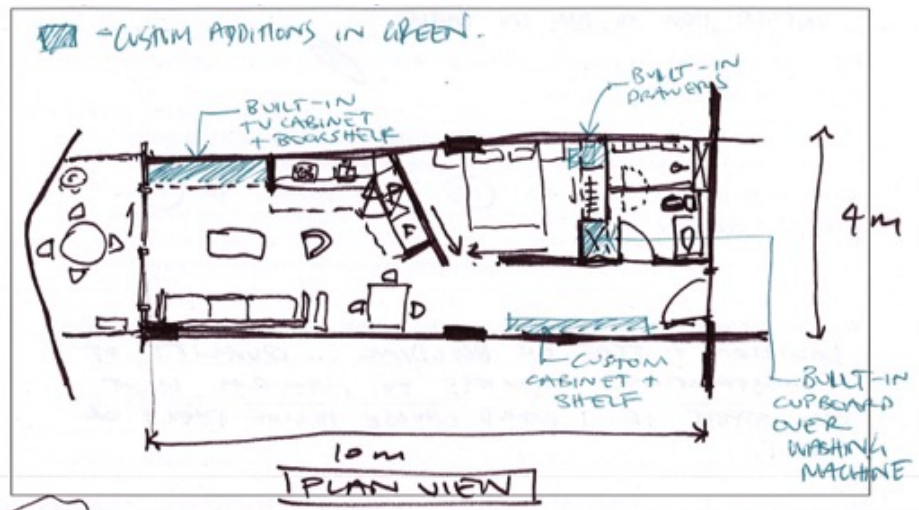 - CUSTOM ADDITIONS IN GREEN.
BUILT-IN
TV CABINET
+ BOOKSHELF
BUILT-IN
DRAWERS
4m
CUSTOM
CABINET +
SHELF
BUILT-IN
CUPBOARD
OVER
WASHING
MACHINE
10m
PLAN VIEW